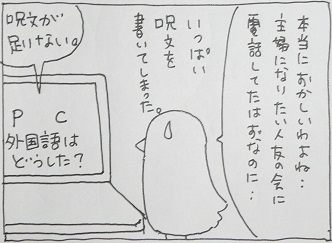 本当におかしいわよね…
主婦になりたい人友の会に
電話してたはずなのに…
いっぱい
呪文を
書いてしまった。
呪文が
足りない。
PC
外国語は
どうした？